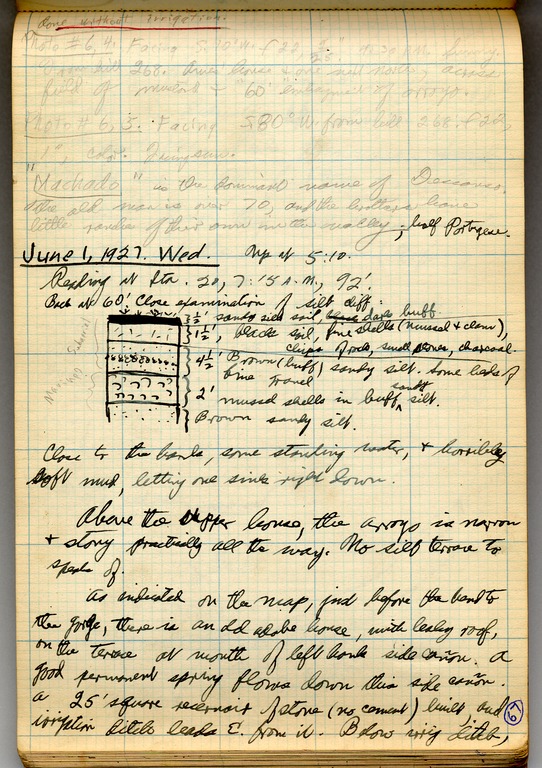 done without irrigation.
Photo # 6, 4. Facing S. 70° W. f 22, 10.30 A.M. Sunny.
268. house & one next north, across
field of mustard & 60' embayment of arroyo.
Photo # 6, 5. Facing S 80° W. from hill 268. f 22,
1",
"Machado" is the dominant name of Descanso.
The old man is over 70, and the brothers have
little ranches of their own in the valley; half Portugese.
June 1, 1927. Wed. Up at 5:10.
Reading at Sta. 20, 7:15 A.M., 92'.
Back at 60'. Close examination of silt cliff:
½' sandy silt soil, dark buff
1½', black soil, fine shells (mussel & clam),
chips of rock, small stones, charcoal.
4½' Brown (buff) sandy silt. Some beds of
fine gravel
2' mussel shells in buff sandy silt.
Brown sandy silt.
Close to the bank, some standing water, & horribly
soft mud, letting one sink right down.
Above the upper house, the arroyo is narrow
& stony practically all the way. No silt terrace to
speak of.
As indicated on the map, just before the bend to
the gorge, there is an old adobe house, with leaky roof,
on the terrace at mouth of left bank side cañon. A
good permanent spring flows down this side cañon.
A 25' square reservoir of stone (no cement) built, and
irrigation ditch leads E. from it. Below irrig. ditch,
67